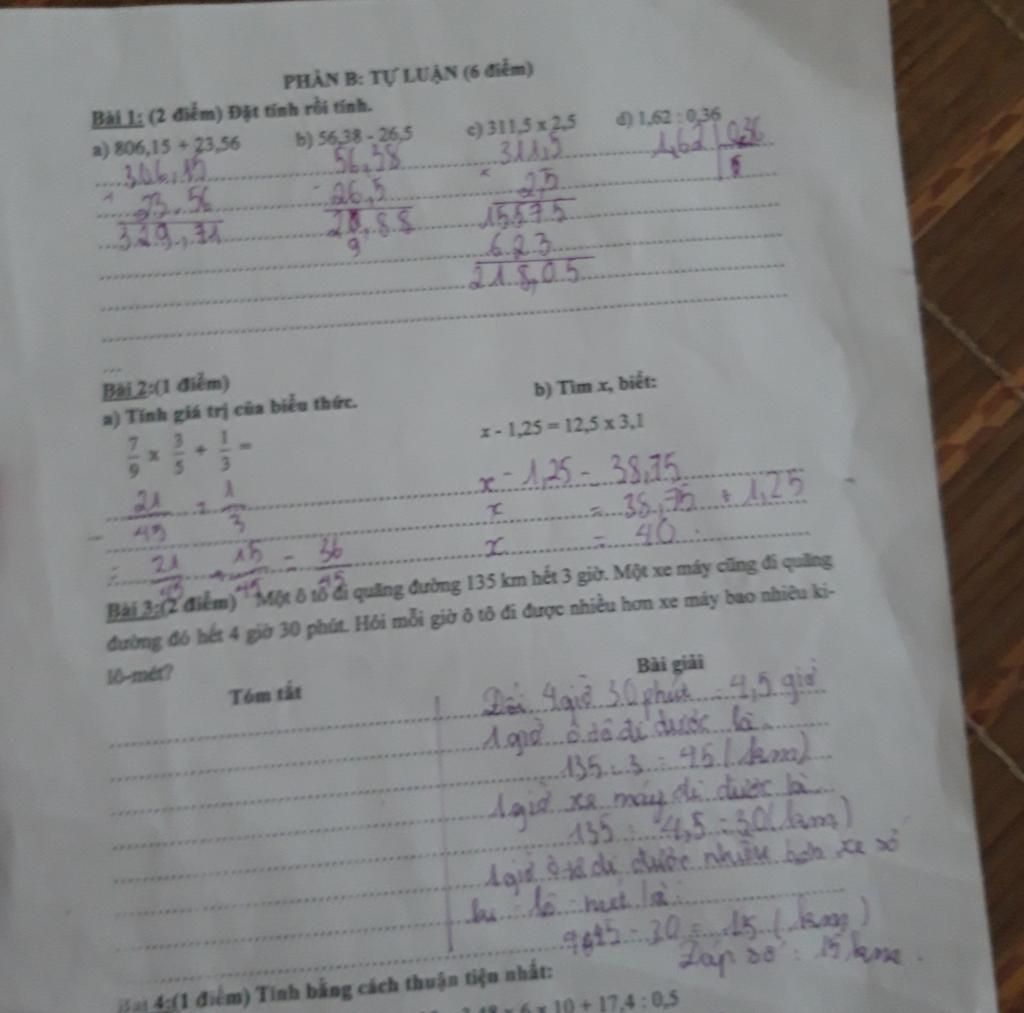 PHẦN B: TỰ LUẬN (6 điểm)
Bài 1: (2 điểm) Đặt tính rồi tính.
a) 806,15 + 23,56 b) 56,38 - 26,5 c) 311,5 x 2,5 d) 1,62 : 0,36
306,15 56,38 311,5 1,62 0,36
+ 23.56 - 26,5 x 2,5
329,71 ,88 15575
9 623
218,05
...
Bài 2:(1 điểm)
a) Tính giá trị của biểu thức. b) Tìm x, biết:
7/9 x 3/5 + 1/3 = x - 1,25 = 12,5 x 3,1
21/45 + 1/3 x - 1,25 = 38,75
x = 38,75 + 1,25
= 21/45 + 15/45 = 36/45 x = 40
Bài 3:(2 điểm) Một ô tô đi quãng đường 135 km hết 3 giờ. Một xe máy cũng đi quãng
đường đó hết 4 giờ 30 phút. Hỏi mỗi giờ ô tô đi được nhiều hơn xe máy bao nhiêu ki-
lô-mét?
Tóm tắt Bài giải
Đổi 4 giờ 30 phút = 4,5 giờ
1 giờ ô tô đi được là
135 : 3 = 45 (km)
1 giờ xe máy đi được là
135 : 4,5 = 30 (km)
1 giờ ô tô đi được nhiều hơn xe số
ki - lô - mét là:
45 - 30 = 15 (km)
Đáp số : 15 km.
Bài 4:(1 điểm) Tính bằng cách thuận tiện nhất:
x 6 x 10 + 17,4 : 0,5